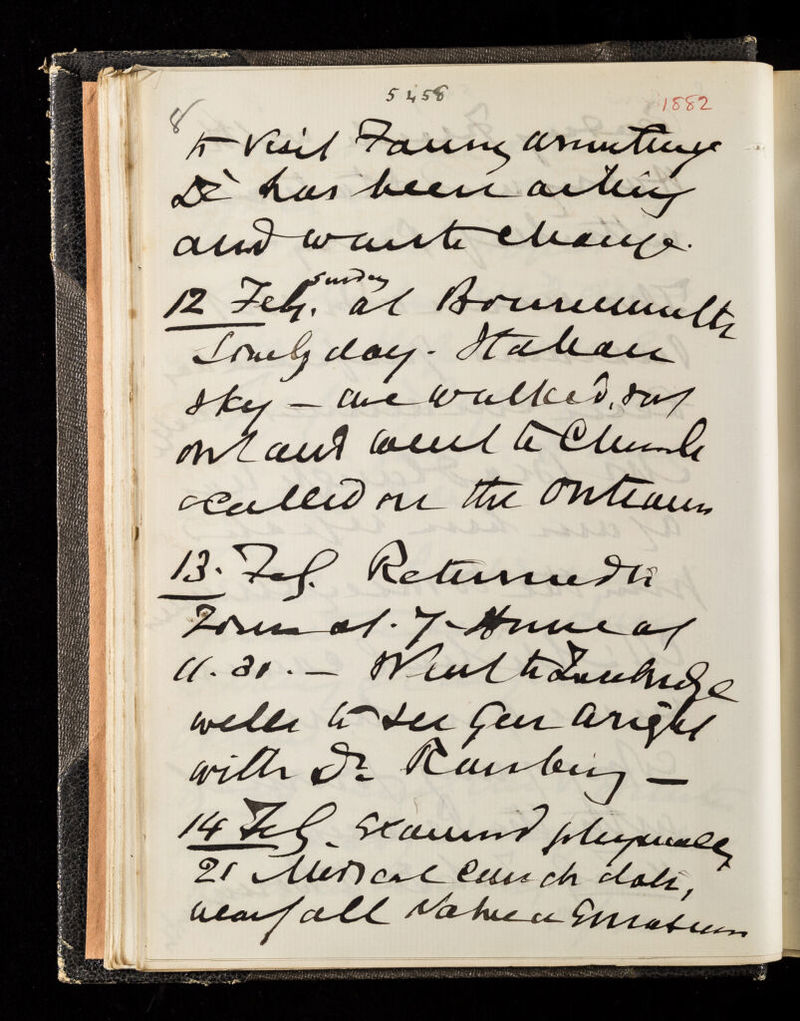 5458
1882
8
to visit Fanny
has been acting
and wants change.
12 Feb. Sunday at Bournemouth
Lovely day. Italian
sky — we walked,
out and went to Church
called on the
13. Feb. Returned to
Town at. 7. Home at
11. 30. — Went to Tunbridge
wells to see Gen Wright
with Dr
14 Feb. Examined physically
21 Medical Candidates,
nearly all